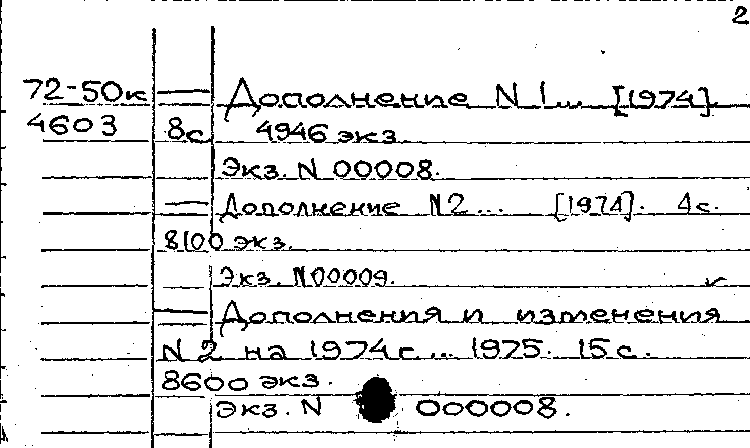 2
72-50к — Дополнение N 1... [1974].
4603 8с 4946 экз.
Экз. N 00008.
— Дополнение N2... [1974]. 4с.
8100 экз.
Экз. N00009.
— Дополнения и изменения
N 2 на 1974 г... 1975. 15 с.
8600 экз.
Экз. N 000008.